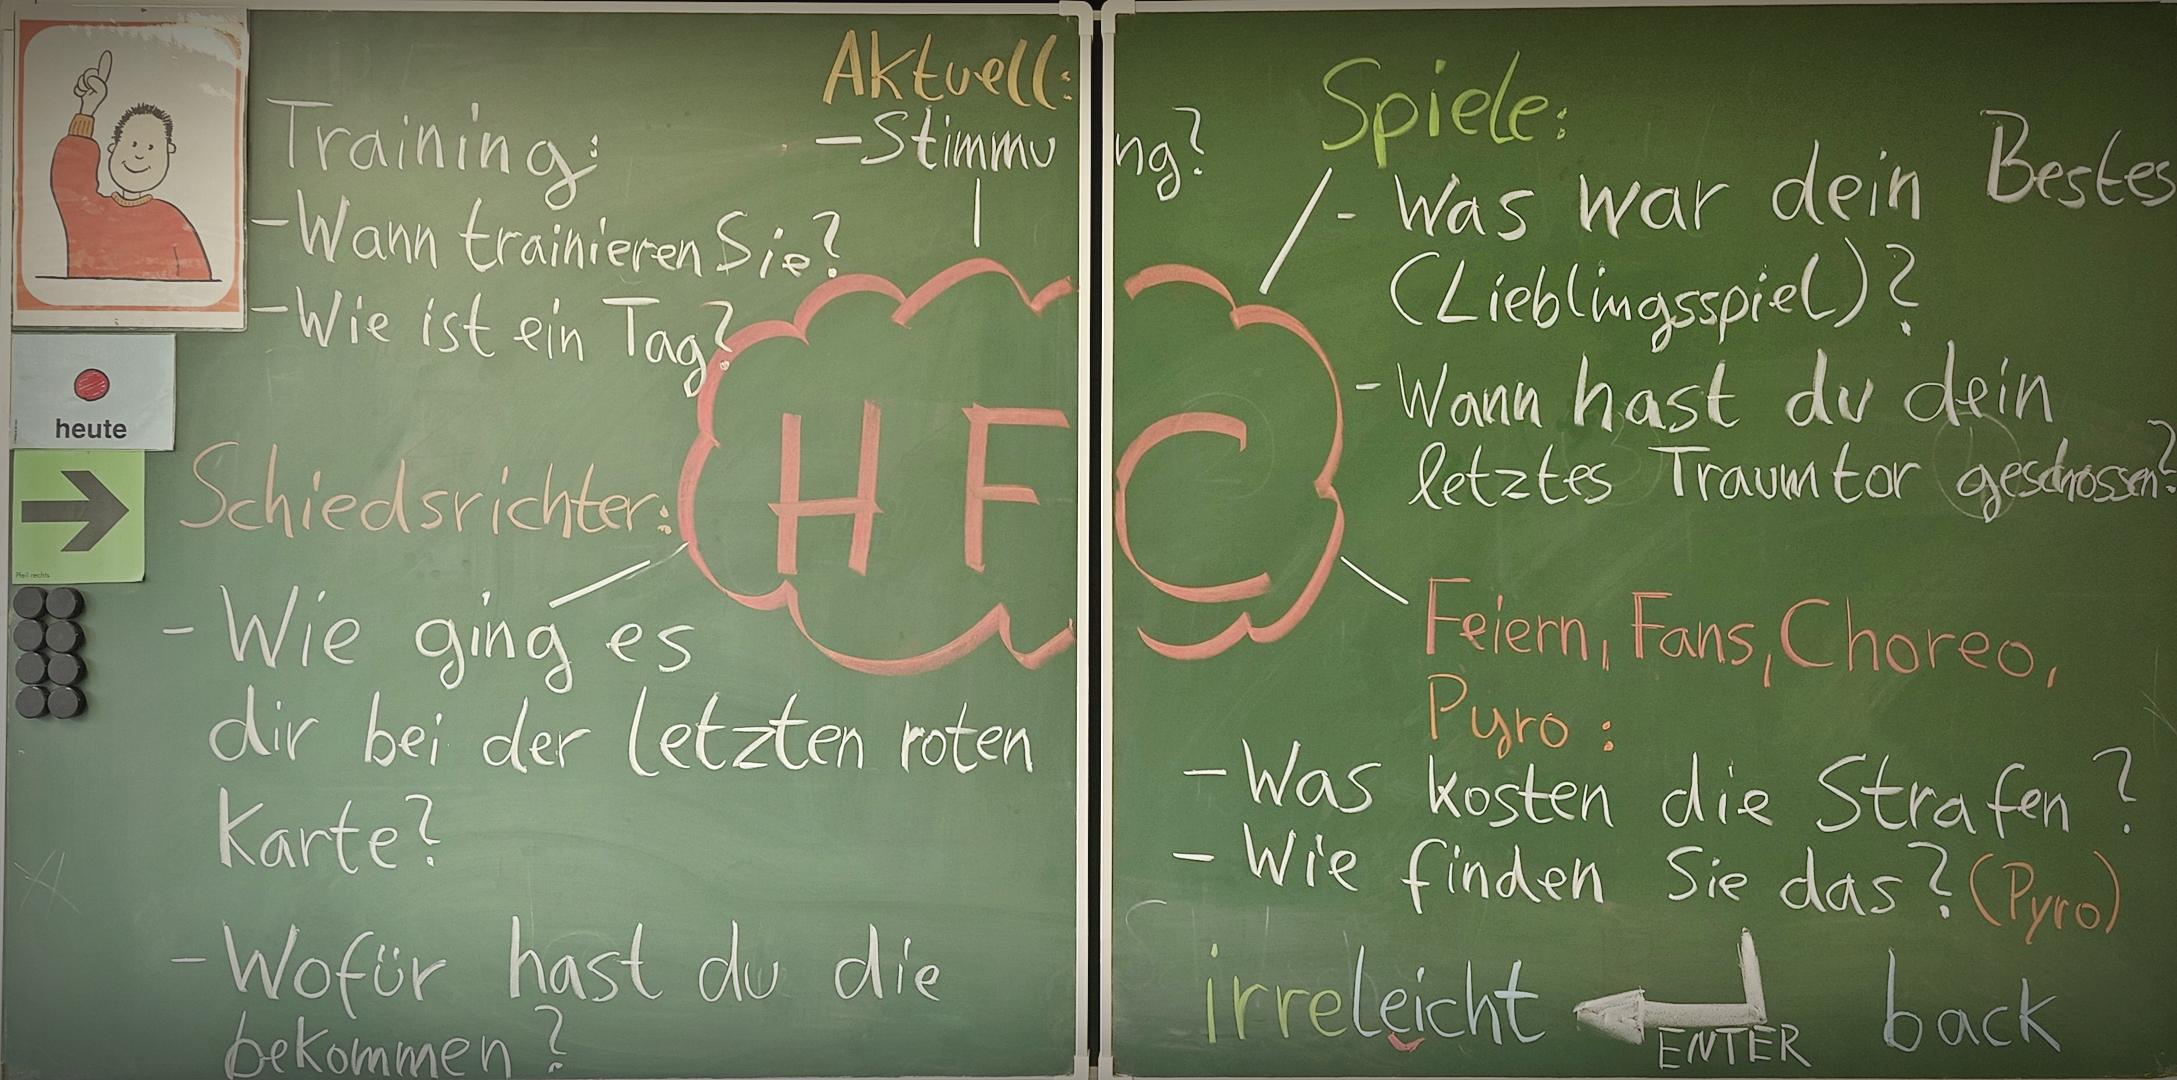 Aktuell:
-Stimmung?
Training:
-Wann trainieren Sie?
-Wie ist ein Tag?
heute
Pfeil rechts
Schiedsrichter:
- Wie ging es
dir bei der letzten roten
Karte?
- Wofür hast du die
bekommen?
HFC
Spiele:
- Was war dein Bestes
(Lieblingsspiel)?
- Wann hast du dein
letztes Traumtor geschossen?
Feiern, Fans, Choreo,
Pyro:
- Was kosten die Strafen?
- Wie finden Sie das? (Pyro)
irreleicht ENTER back